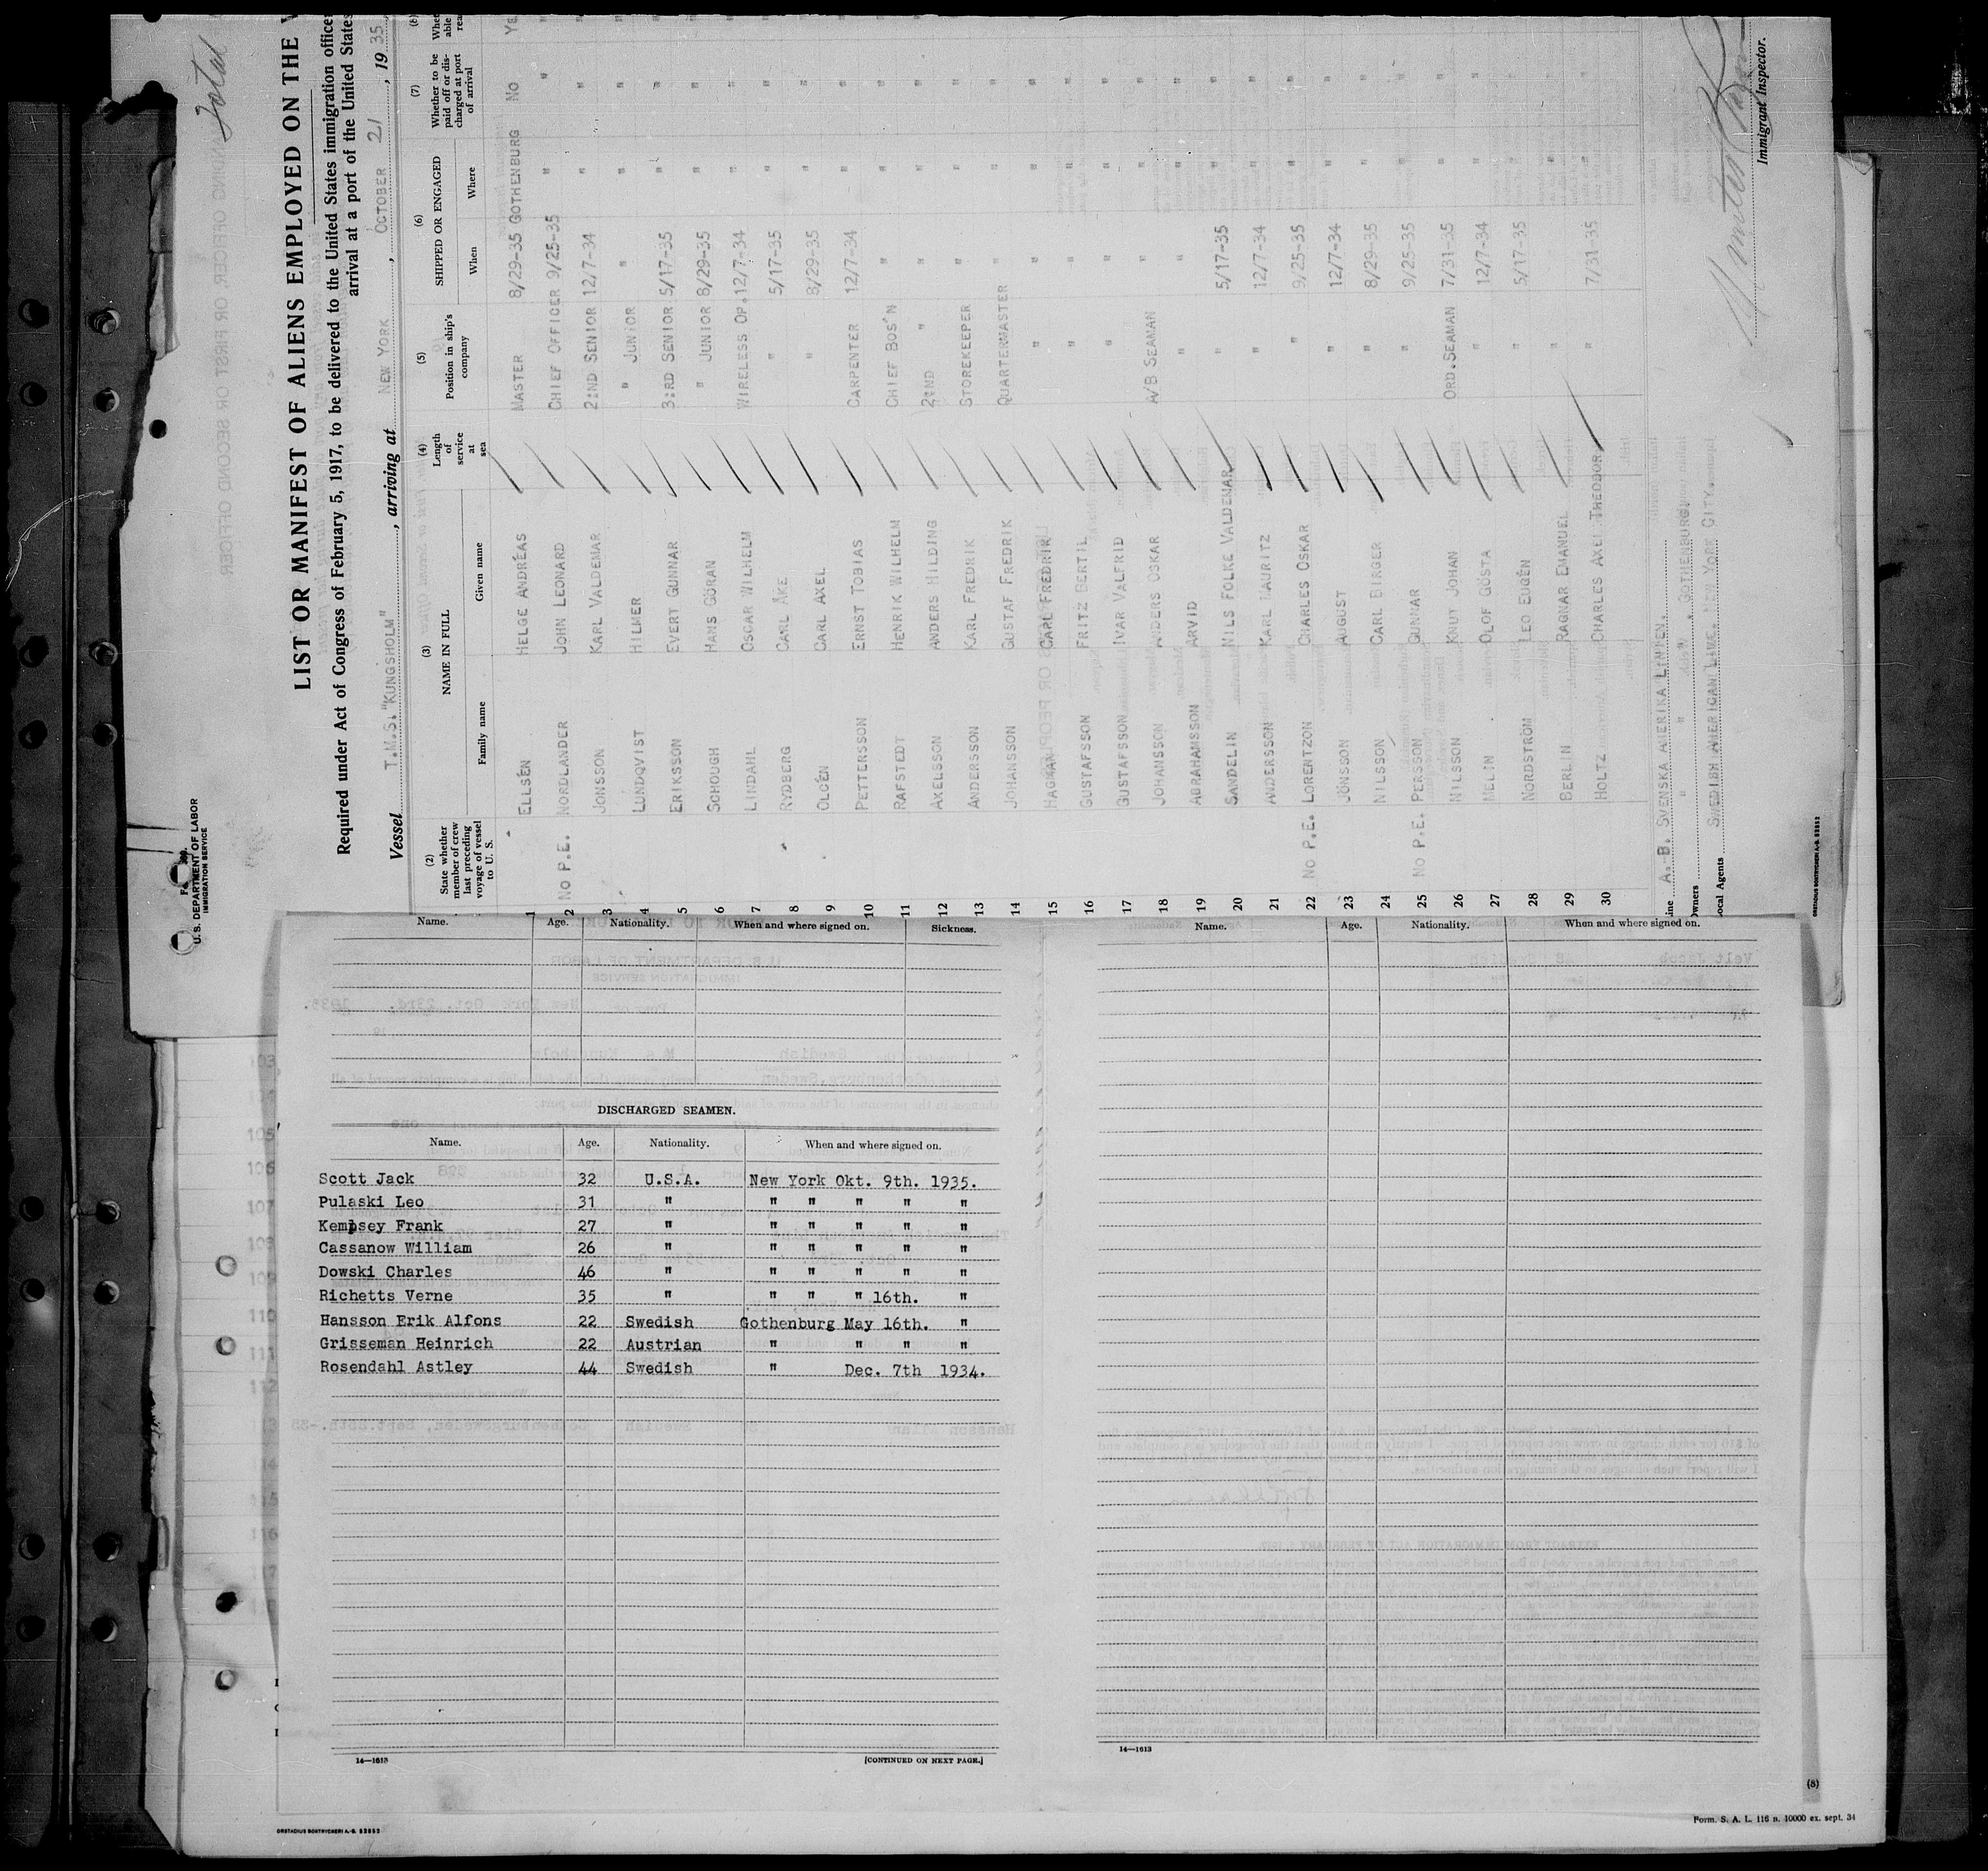 Total
U.S. DEPARTMENT OF LABOR
IMMIGRATION SERVICE
LIST OR MANIFEST OF ALIENS EMPLOYED ON THE
Required under Act of Congress of February 5, 1917, to be delivered to the United States immigration office
arrival at a port of the United States
Vessel T.M.S."KUNGSHOLM", arriving at NEW YORK, OCTOBER 21, 1935
(2) State whether member of crew last preceding voyage of vessel to U. S.
(3) NAME IN FULL
Family name Given name
(4) Length of service at sea
(5) Position in ship's company
(6) SHIPPED OR ENGAGED
When Where
(7) Whether to be paid off or discharged at port of arrival
1 ELLSÉN HELGE ANDRÉAS MASTER 8/29-35 GOTHENBURG No
2 No P.E. NORDLANDER JOHN LEONARD CHIEF OFFICER 9/25-35 " "
3 JONSSON KARL VALDEMAR 2:ND SENIOR 12/7-34 " "
4 LUNDQVIST HILMER " JUNIOR " " "
5 ERIKSSON EVERT GUNNAR 3:RD SENIOR 5/17-35 " "
6 SCHOUGH HANS GÖRAN " JUNIOR 8/29-35 " "
7 LINDAHL OSCAR WILHELM WIRELESS OP. 12/7-34 " "
8 RYDBERG CARL ÅKE " 5/17-35 " "
9 OLCÉN CARL AXEL " 8/29-35 " "
10 PETTERSSON ERNST TOBIAS CARPENTER 12/7-34 " "
11 RAFSTEDT HENRIK WILHELM CHIEF BOS'N " " "
12 AXELSSON ANDERS HILDING 2:ND " " " "
13 ANDERSSON KARL FREDRIK STOREKEEPER " " "
14 JOHANSSON GUSTAF FREDRIK QUARTERMASTER " " "
15 HAGMAN CARL FREDRIK " " " "
16 GUSTAFSSON FRITZ BERTIL " " " "
17 GUSTAFSSON IVAR VALFRID " " " "
18 JOHANSSON ANDERS OSKAR A/B SEAMAN " " "
19 ABRAHAMSSON ARVID " " " "
20 SANDELIN NILS FOLKE VALDEMAR " 5/17-35 " "
21 ANDERSSON KARL MAURITZ " 12/7-34 " "
22 No P.E. LORENTZON CHARLES OSKAR " 9/25-35 " "
23 JÖNSSON AUGUST " 12/7-34 " "
24 NILSSON CARL BIRGER " 8/29-35 " "
25 No P.E. PERSSON GUNNAR " 9/25-35 " "
26 NILSSON KNUT JOHAN ORD.SEAMAN 7/31-35 " "
27 MELIN OLOF GÖSTA " 12/7-34 " "
28 NORDSTRÖM LEO EUGÉN " 5/17-35 " "
29 BERLIN RAGNAR EMANUEL " " "
30 HOLTZ CHARLES AXEL THEODOR " 7/31-35 " "
Line A.-B. SVENSKA AMERIKA LINIEN.
Owners " " " GOTHENBURG.
Local Agents SWEDISH AMERICAN LINE. NEW YORK CITY.
Immigrant Inspector.
Name. Age. Nationality. When and where signed on. Sickness.
DISCHARGED SEAMEN.
Name. Age. Nationality. When and where signed on.
Scott Jack 32 U.S.A. New York Okt. 9th. 1935.
Pulaski Leo 31 " " " " " "
Kempsey Frank 27 " " " " " "
Cassanow William 26 " " " " " "
Dowski Charles 46 " " " " " "
Richetts Verne 35 " " " " 16th. "
Hansson Erik Alfons 22 Swedish Gothenburg May 16th. "
Grisseman Heinrich 22 Austrian " " " "
Rosendahl Astley 44 Swedish " Dec. 7th 1934.
14—1613 [CONTINUED ON NEXT PAGE.]
Name. Age. Nationality. When and where signed on.
14—1613
(5)
Form. S. A. L. 116 n. 10000 ex. sept. 34